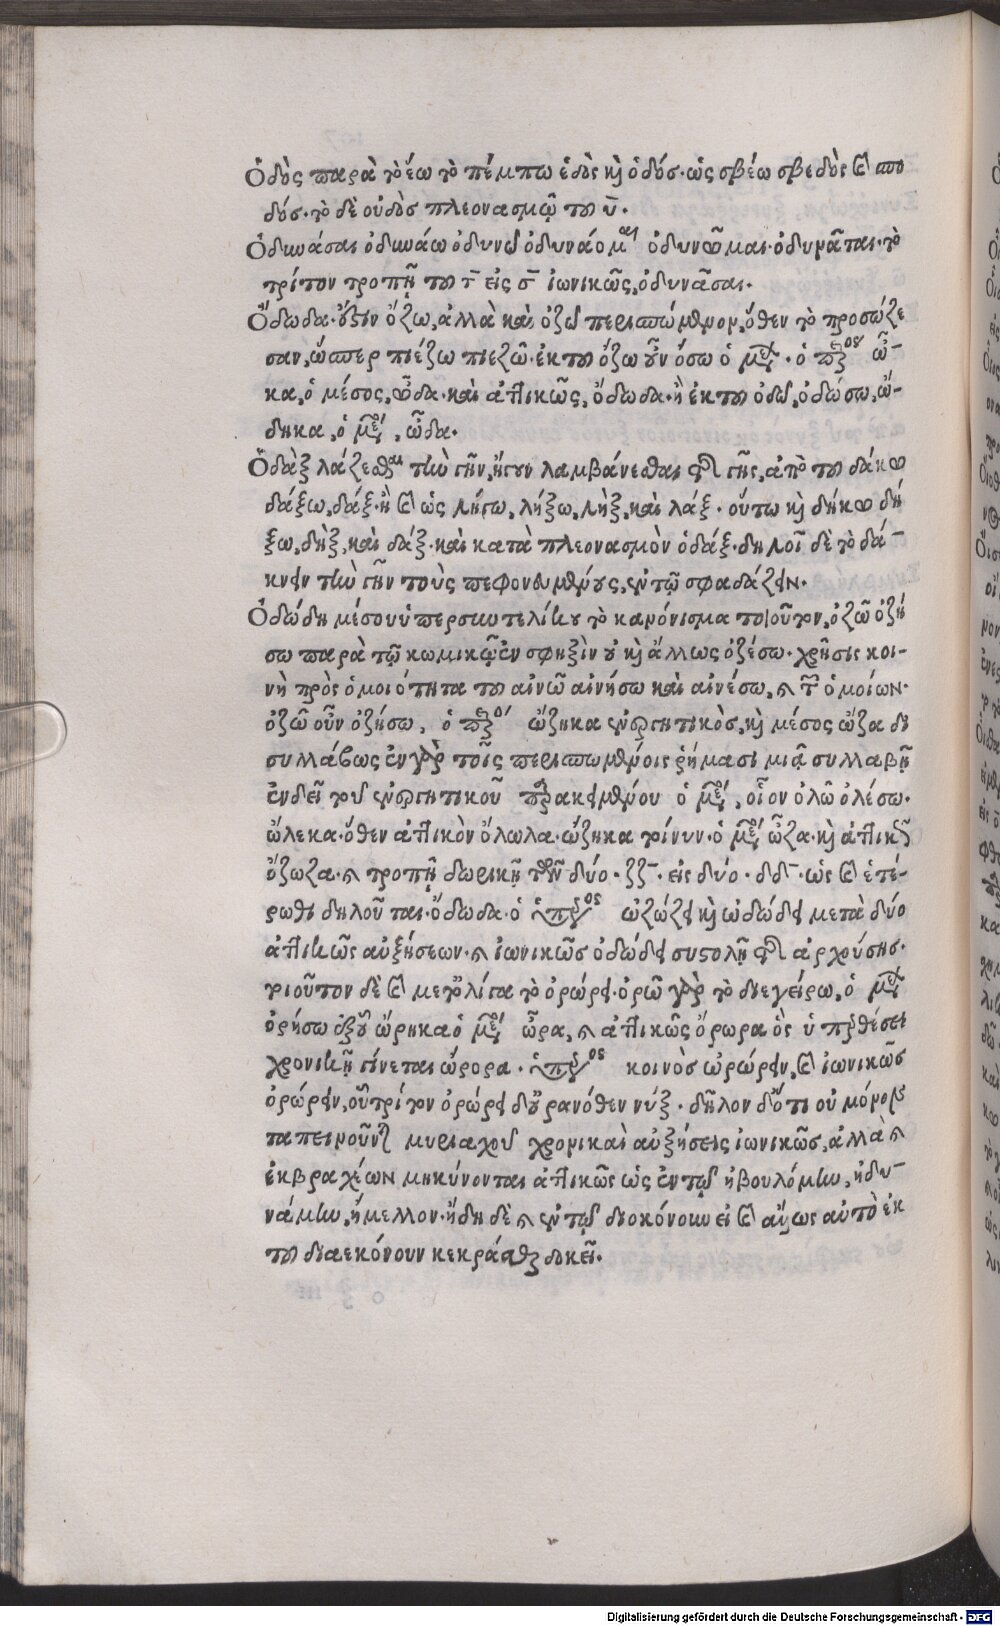 Ὁδὸς παρὰ τὸ ἕω τὸ πέμπω ἑδὸς καὶ ὁδός. ὡς σβέω σβεδὸς καὶ σπο
δός. τὸ δὲ οὐδὸς πλεονασμῷ τοῦ υ̅.
Ὀδυνάσαι ὀδυνάω ὀδυνῶ ὀδυνάομαι ὀδυνῶμαι. ὀδυνᾶται. τὸ
τρίτον τροπῇ τοῦ τ̅ εἰς σ̅ ἰωνικῶς, ὀδυνᾶσαι.
Ὄδωδα. οὐκ ἔστιν ὄζω, ἀλλὰ καὶ ὀζῶ περισπώμενον, ὅθεν τὸ προσώζε
σαν, ὥσπερ πιέζω πιεζῶ. ἐκ τοῦ ὄζω οὖν ὄσω ὁ μέλλων. ὁ παρακείμενος ὦ-
κα, ὁ μέσος, ὦδα. καὶ ἀττικῶς, ὄδωδα. ἢ ἐκ τοῦ ὀδῶ, ὀδώσω, ὤ-
δηκα, ὁ μέσος, ὦδα.
Ὀδὰξ λάζεσθαι τὴν γῆν, ἤγουν λαμβάνεσθαι τῆς γῆς, ἀπὸ τοῦ δάκω
δάξω, δάξ. ἢ καὶ ὡς λήγω, λήξω, λήξ, καὶ λάξ. οὕτω καὶ δήκω δή
ξω, δήξ, καὶ δάξ. καὶ κατὰ πλεονασμὸν ὀδάξ. δηλοῖ δὲ τὸ δά-
κνειν τὴν γῆν τοὺς πεφονευμένους, ἐν τῷ σφαδάζειν.
Ὀδώδη μέσου ὑπερσυντελίκου τὸ κανόνισμα τοιοῦτον, ὀζῶ ὀζή
σω παρὰ τῷ κωμικῷ ἐν σφηξὶν οὐ καὶ ἄλλως ὀζέσω. χρῆσις κοι-
νὴ πρὸς ὁμοιότητα τοῦ αἰνῶ αἰνήσω καὶ αἰνέσω, καὶ τῶν ὁμοίων.
ὀζῶ οὖν ὀζήσω, ὁ παρακείμενος ὤζηκα ἐνεργητικὸς, καὶ μέσος ὦζα δι
συλλάβως ἐν γὰρ τοῖς περισπωμένοις ῥήμασι μιᾷ συλλαβῇ
ἐνδεῖ τοῦ ἐνεργητικοῦ παρακειμένου ὁ μέσος, οἷον ὀλῶ ὀλέσω.
ὤλεκα. ὅθεν ἀττικὸν ὄλωλα. ὤζηκα τοίνυν. ὁ μέσος ὦζα. καὶ ἀττικῶς
ὄζωζα. καὶ τροπῇ δωρικῇ τῶν δύο. ζζ̅. εἰς δύο. δδ̅. ὡς καὶ ἑτέ-
ρωθι δηλοῦται. ὄδωδα. ὁ ὑπερσυντέλικος ὠζώζει καὶ ὠδώδει μετὰ δύο
ἀττικῶς αὐξήσεων. καὶ ἰωνικῶς ὀδώδει συστολῇ τῆς ἀρχούσης.
τοιοῦτον δὲ καὶ μετ' ὀλίγα τὸ ὀρώρει. ὀρῶ γὰρ τὸ διεγείρω, ὁ μέλλων
ὀρήσω ἐξ οὗ ὤρηκα ὁ μέσος ὦρα, καὶ ἀττικῶς ὄρωρα ὃς ὑπερθέσει
χρονικῇ γίνεται ὤρορα. ὁ ὑπερσυντέλικος κοινὸς ὠρώρειν, καὶ ἰωνικῶς
ὀρώρειν, οὗ τρίτον ὀρώρει δ' οὐρανόθεν νύξ. δῆλον δ' ὅτι οὐ μόνον
ταπεινοῦνται μυριαχοῦ χρονικαὶ αὐξήσεις ἰωνικῶς, ἀλλὰ καὶ
ἐκ βραχέων μηκύνονται ἀττικῶς ὡς ἐν τῷ ἠβουλόμην, ἠδυ-
νάμην, ἤμελλον. ἤδη δὲ καὶ ἐν τῷ διοκόνουν εἰ καὶ ἄλλως αὐτὸ ἐκ
τοῦ διαεκόνουν κεκρᾶσθαι δοκεῖ.
Digitalisierung gefördert durch die Deutsche Forschungsgemeinschaft - DFG